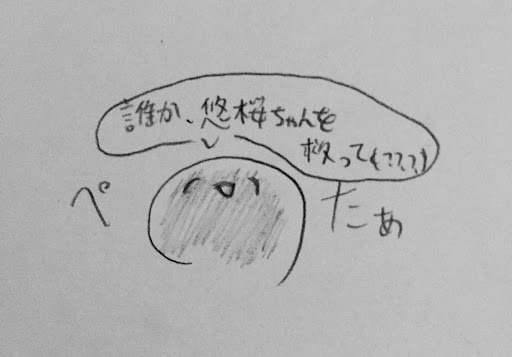 誰か、悠桜ちゃんを
救って(????)
ぺ
たぁ